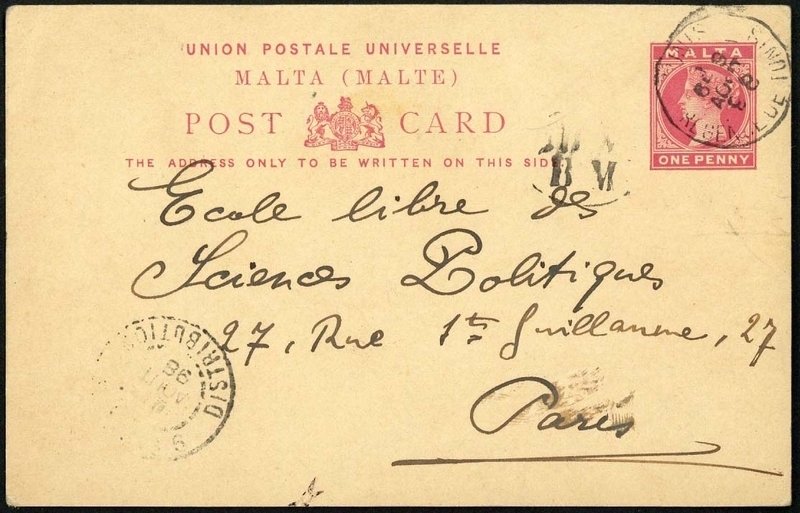 UNION POSTALE UNIVERSELLE
MALTA (MALTE)
POST CARD
THE ADDRESS ONLY TO BE WRITTEN ON THIS SIDE
MALTA
ONE PENNY
B M
Ecole libre des
Sciences Politiques
27, Rue St Guillaume, 27
Paris
DISTRIBUTION
98